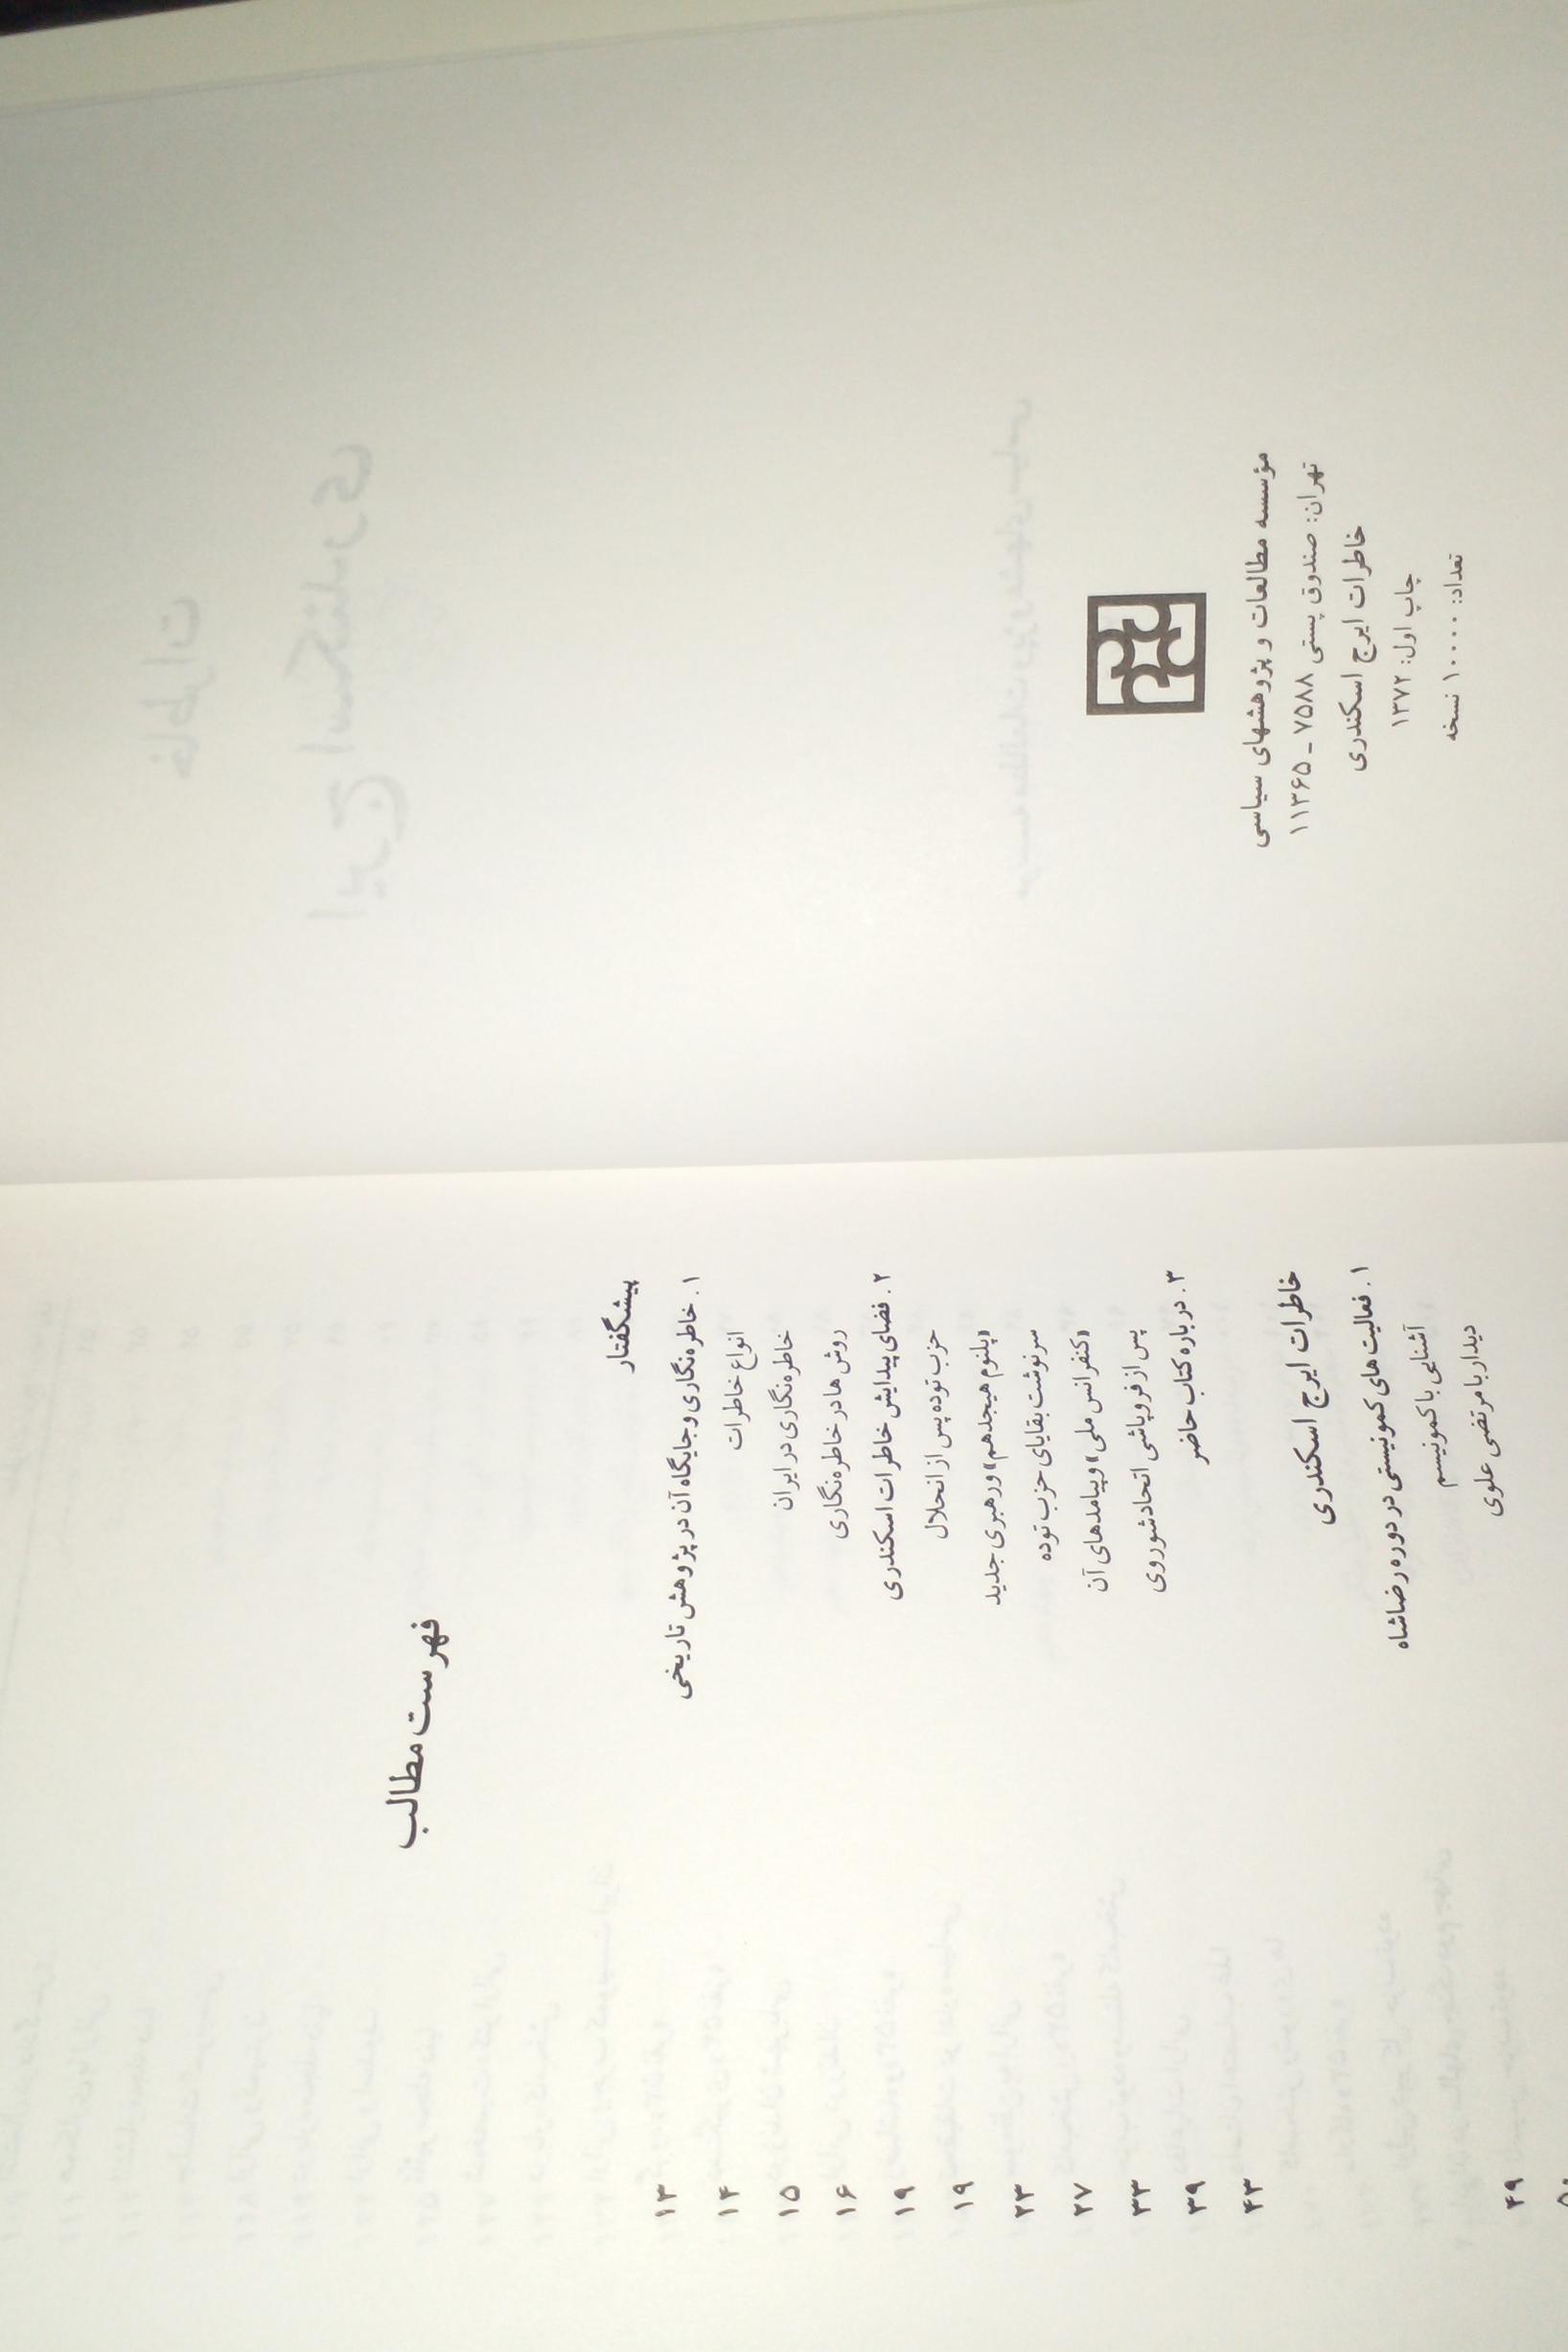 مؤسسه مطالعات و پژوهشهای سیاسی
تهران: صندوق پستی ۷۵۸۸ ـ ۱۱۳۶۵
خاطرات ایرج اسکندری
چاپ اول: ۱۳۷۲
تعداد: ۱۰۰۰۰ نسخه
فهرست مطالب
پیشگفتار
۱. خاطره‌نگاری و جایگاه آن در پژوهش تاریخی ۱۳
انواع خاطرات ۱۴
خاطره‌نگاری در ایران ۱۵
روش‌ها در خاطره‌نگاری ۱۶
۲. فضای پیدایش خاطرات اسکندری ۱۹
حزب توده پس از انحلال ۱۹
«پلنوم هیجدهم» و رهبری جدید ۲۳
سرنوشت بقایای حزب توده ۲۷
«کنفرانس ملی» و پیامدهای آن ۳۳
پس از فروپاشی اتحاد شوروی ۳۹
۳. درباره کتاب حاضر ۴۳
خاطرات ایرج اسکندری
۱. فعالیت‌های کمونیستی در دوره رضاشاه
آشنایی با کمونیسم ۴۹
دیدار با مرتضی علوی